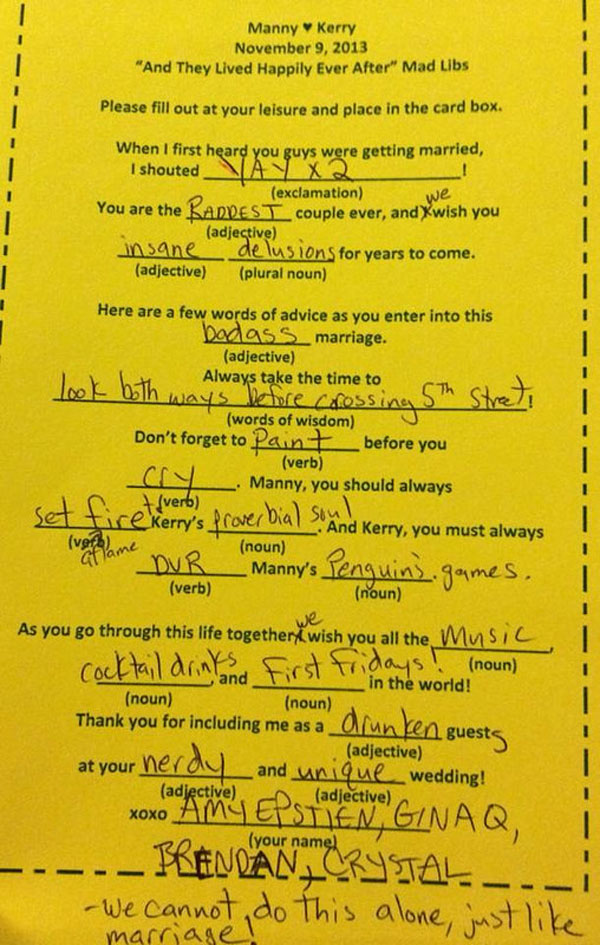 Manny ♥ Kerry
November 9, 2013
"And They Lived Happily Ever After" Mad Libs
Please fill out at your leisure and place in the card box.
When I first heard you guys were getting married,
I shouted YAY x 2!
(exclamation)
we
You are the RADDEST couple ever, and I wish you
(adjective)
insane delusions for years to come.
(adjective) (plural noun)
Here are a few words of advice as you enter into this
badass marriage.
(adjective)
Always take the time to
look both ways before crossing 5th Street!
(words of wisdom)
Don't forget to Paint before you
(verb)
cry. Manny, you should always
(verb)
set fire to Kerry's proverbial soul. And Kerry, you must always
(verb) (noun)
aflame
DVR Manny's Penguin's games.
(verb) (noun)
we
As you go through this life together, I wish you all the Music,
(noun)
cocktail drinks, and First Fridays! in the world!
(noun) (noun)
Thank you for including me as a drunken guests
(adjective)
at your nerdy and unique wedding!
(adjective) (adjective)
xoxo AMY EPSTIEN, GINA Q,
(your name)
BRENDAN, CRYSTAL
-we cannot do this alone, just like
marriage!